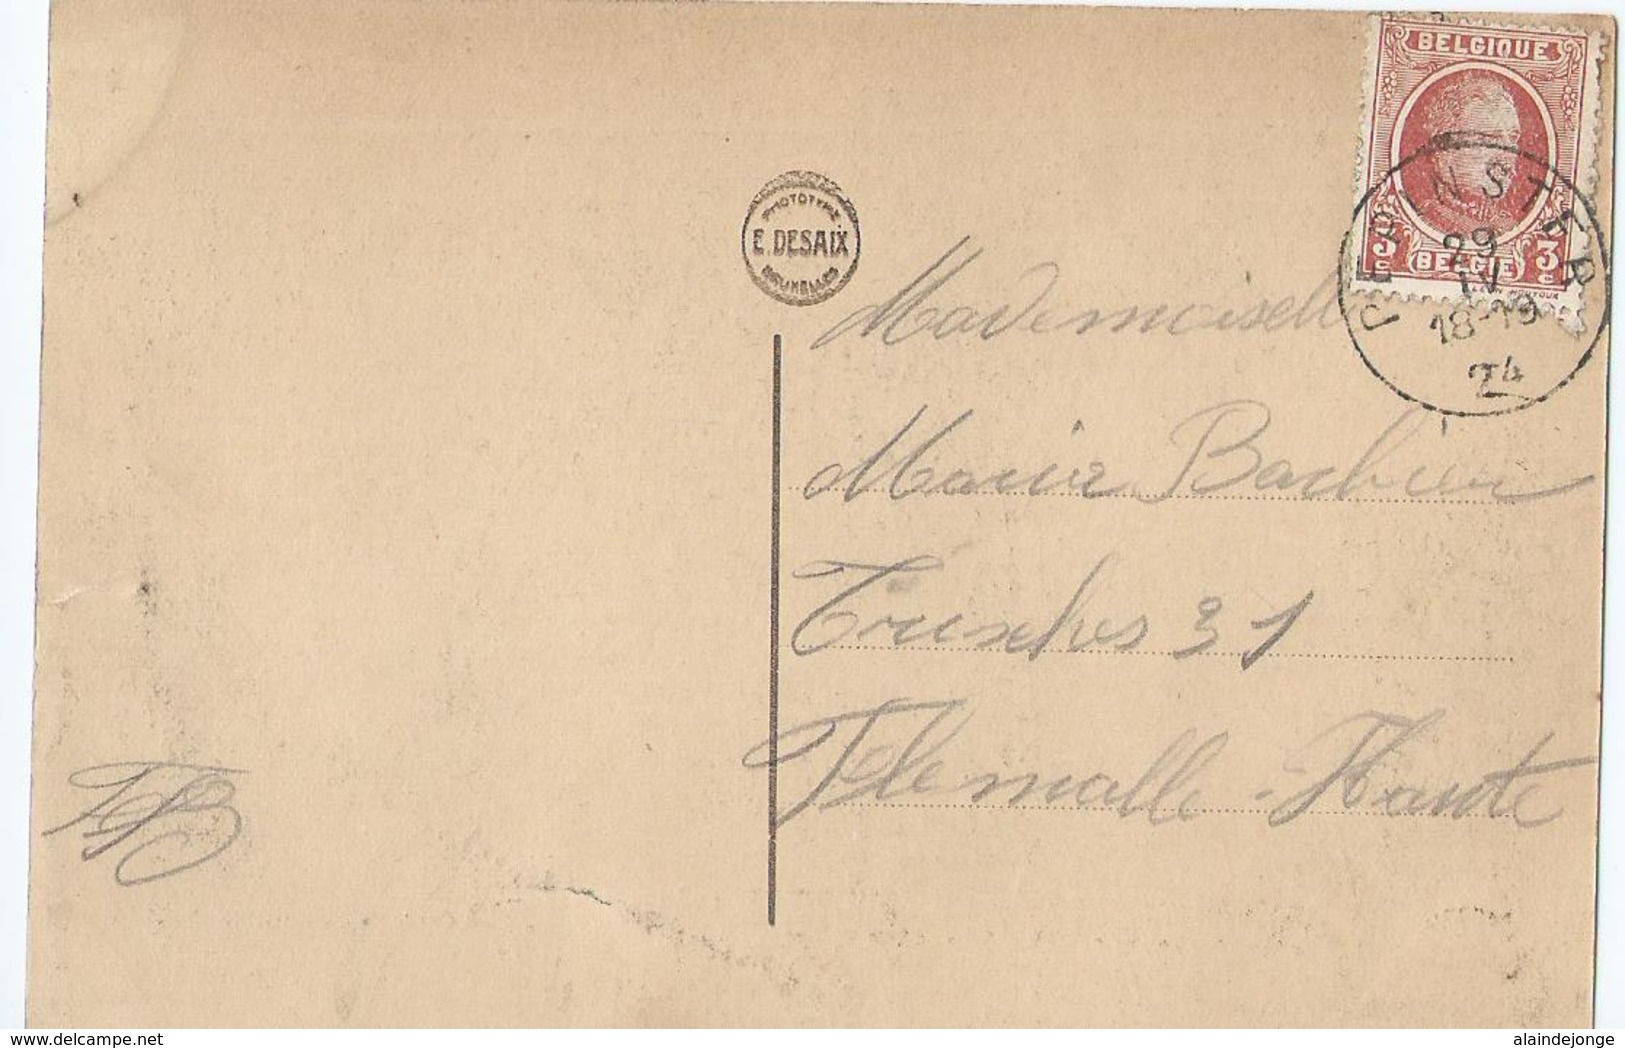 BELGIQUE
3c BELGIE 3c
PEPINSTER
29
IV
18-19
24
PHOTOTYPIE
E. DESAIX
BRUXELLES
Mademoiselle
Marie Barbier
Trusches 31
Flemalle-Haute
delcampe.net
alaindejonge